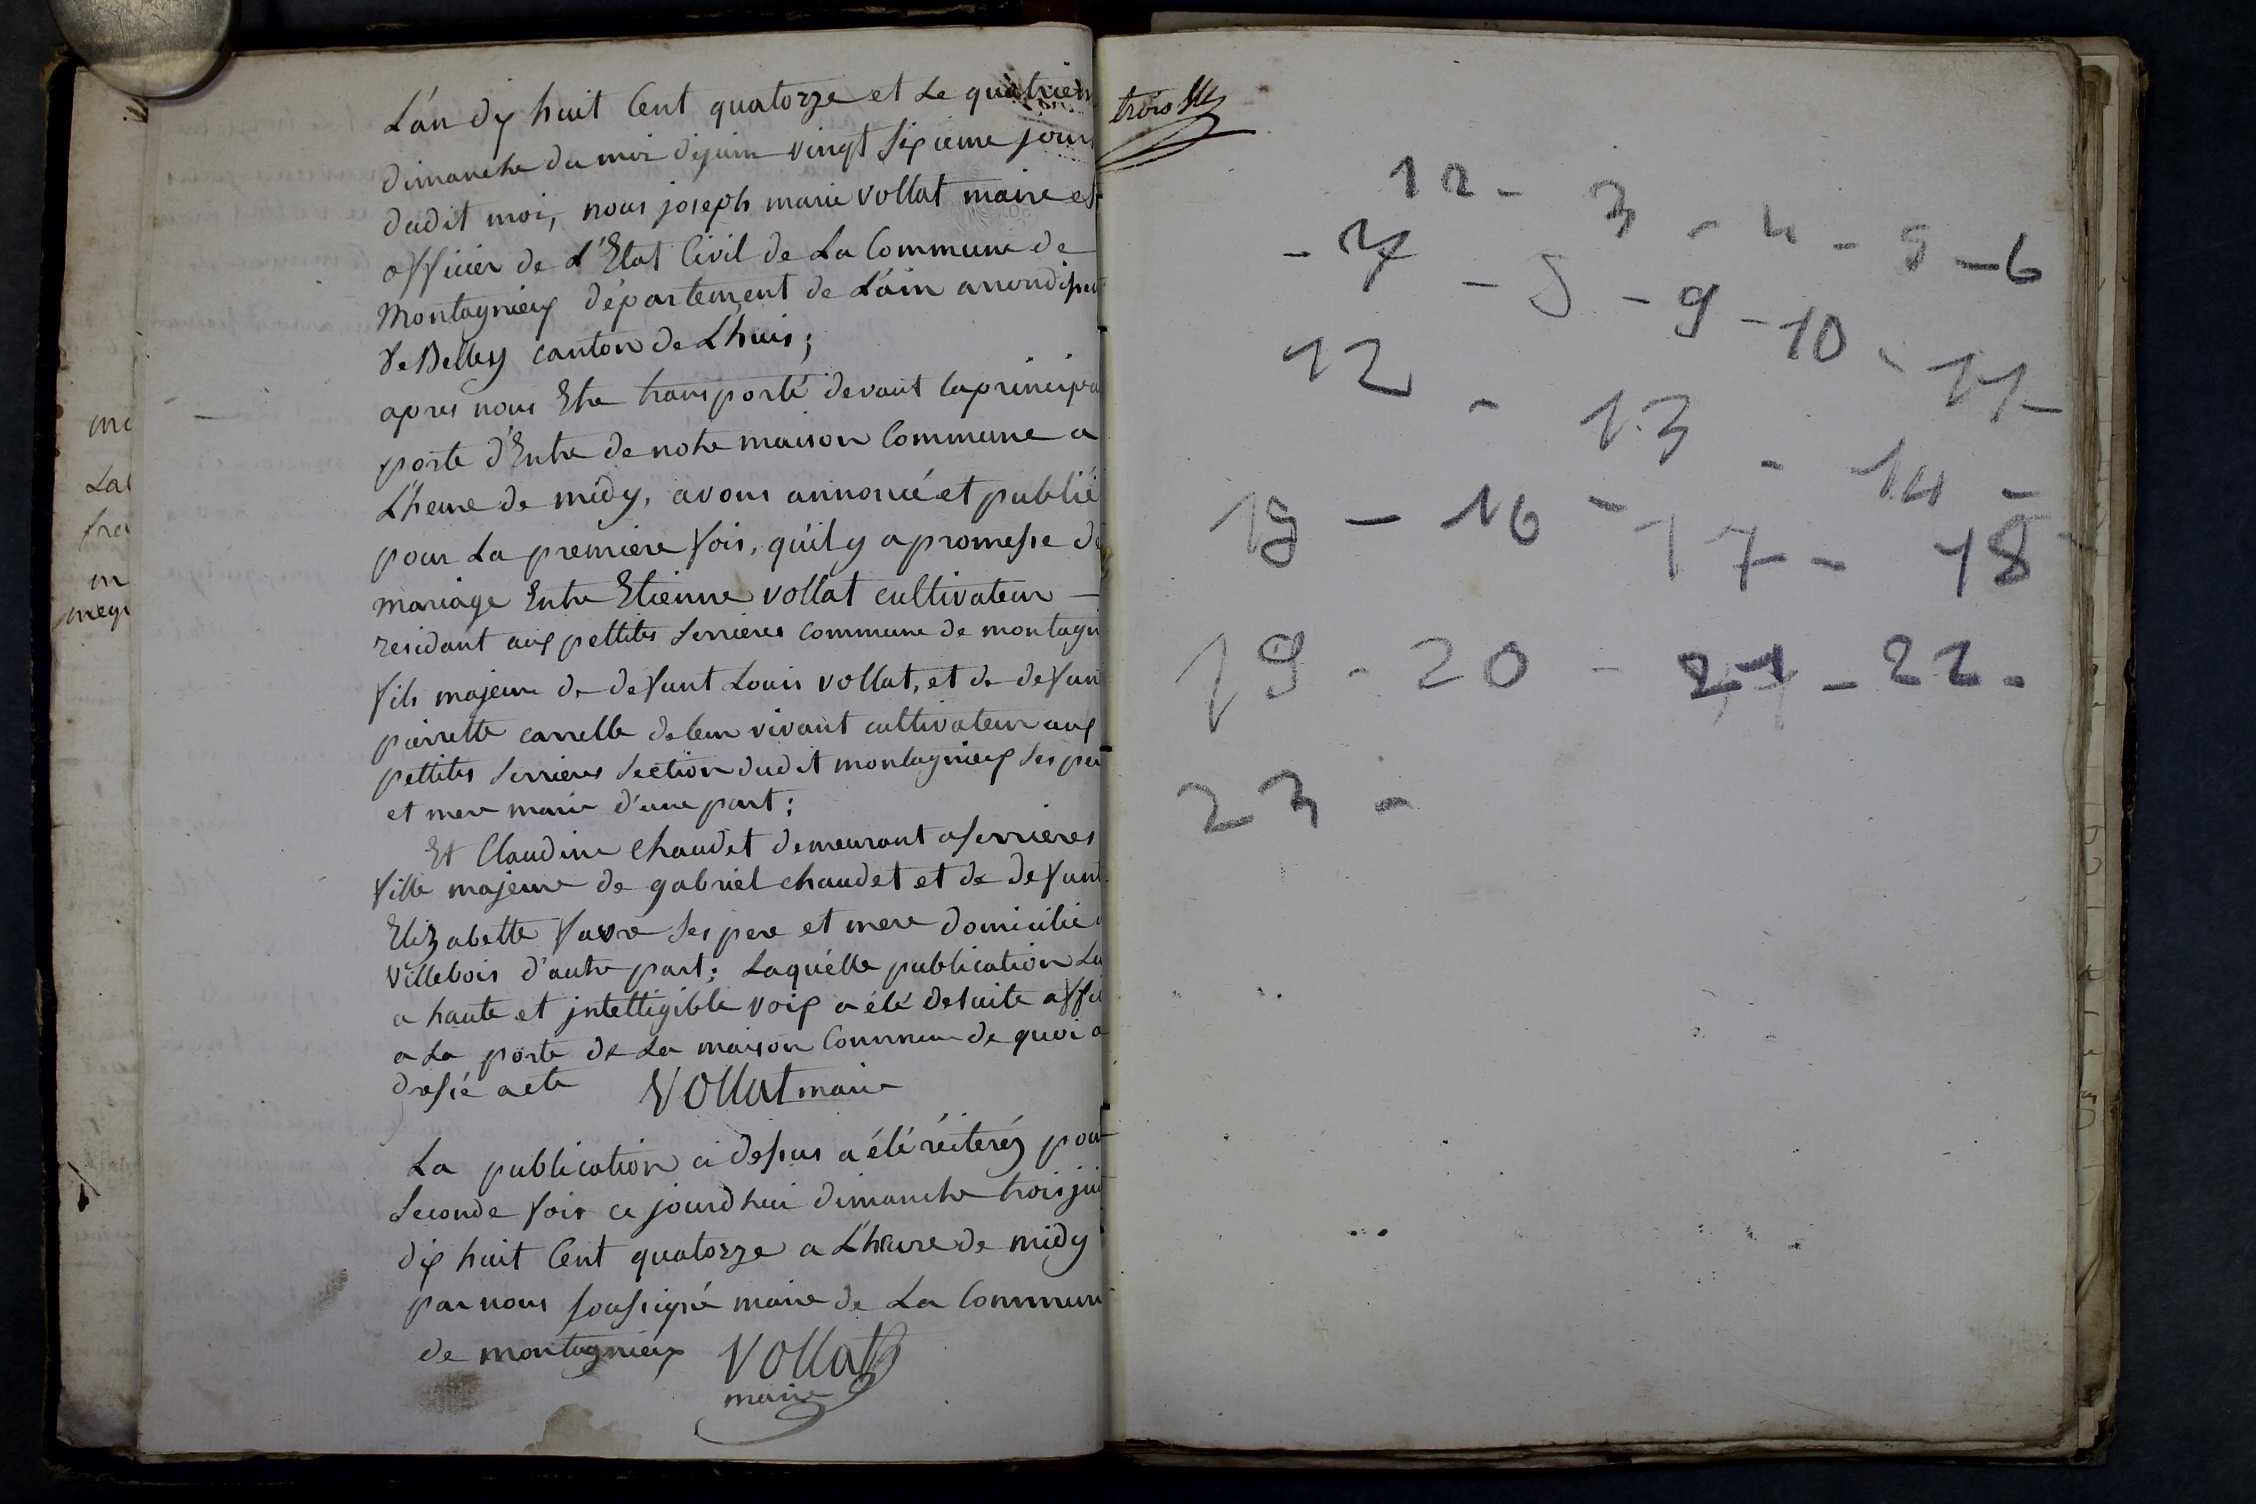 L'an dix huit Cent quatorze et Le quatriem
dimanche du moi dejuin vingt sixieme jour
dudit moi, nous joseph marie vollat maire et
officier de L'Etat Civil de La Commune de
montagnieux département de L'ain arrondisse
de Belley canton de Lhuis;
apres nous Etre transporté devant laprincipa
porte d'Entre de notre maison Commune a
L'heure de midy, avons annoncé et publié
pour La premiere fois, qu'il y a promesse de
mariage Entre Etienne vollat cultivateur —
residant aux pettites Serrieres commune de montagn
fils majeur de defunt Louis vollat, et de defun
pierrette carrelle deleur vivant cultivateur aux
pettites Serrieres Section dudit montagnieux Ses per
et mere marié d'une part;
Et Claudine Chaudet demeurant a serrieres
fille majeure de gabriel chaudet et de defunt
Elizabette favre Ses pere et mere domicilié a
Villebois d'autre part; Laquelle publication Lu
a haute et jntelligible voix a été desuite affi
a La porte de La maison Commune de quoi a
dressé acte Vollat maire
La publication ci dessus a été réiteréz pour
Seconde fois ce jourdhui dimanche trois jui
dix huit Cent quatorze a L'heure de midy
par nous soussigné maire de La Commun
de montagnieux Vollat
maire
mo
Lal
fra
m
trois
12 - 3 - 4 - 5 - 6
- 7 - 8 - 9 - 10 - 11
12 - 13 - 14 -
15 - 16 - 17 - 18 -
19 - 20 - 21 - 22 -
23 -